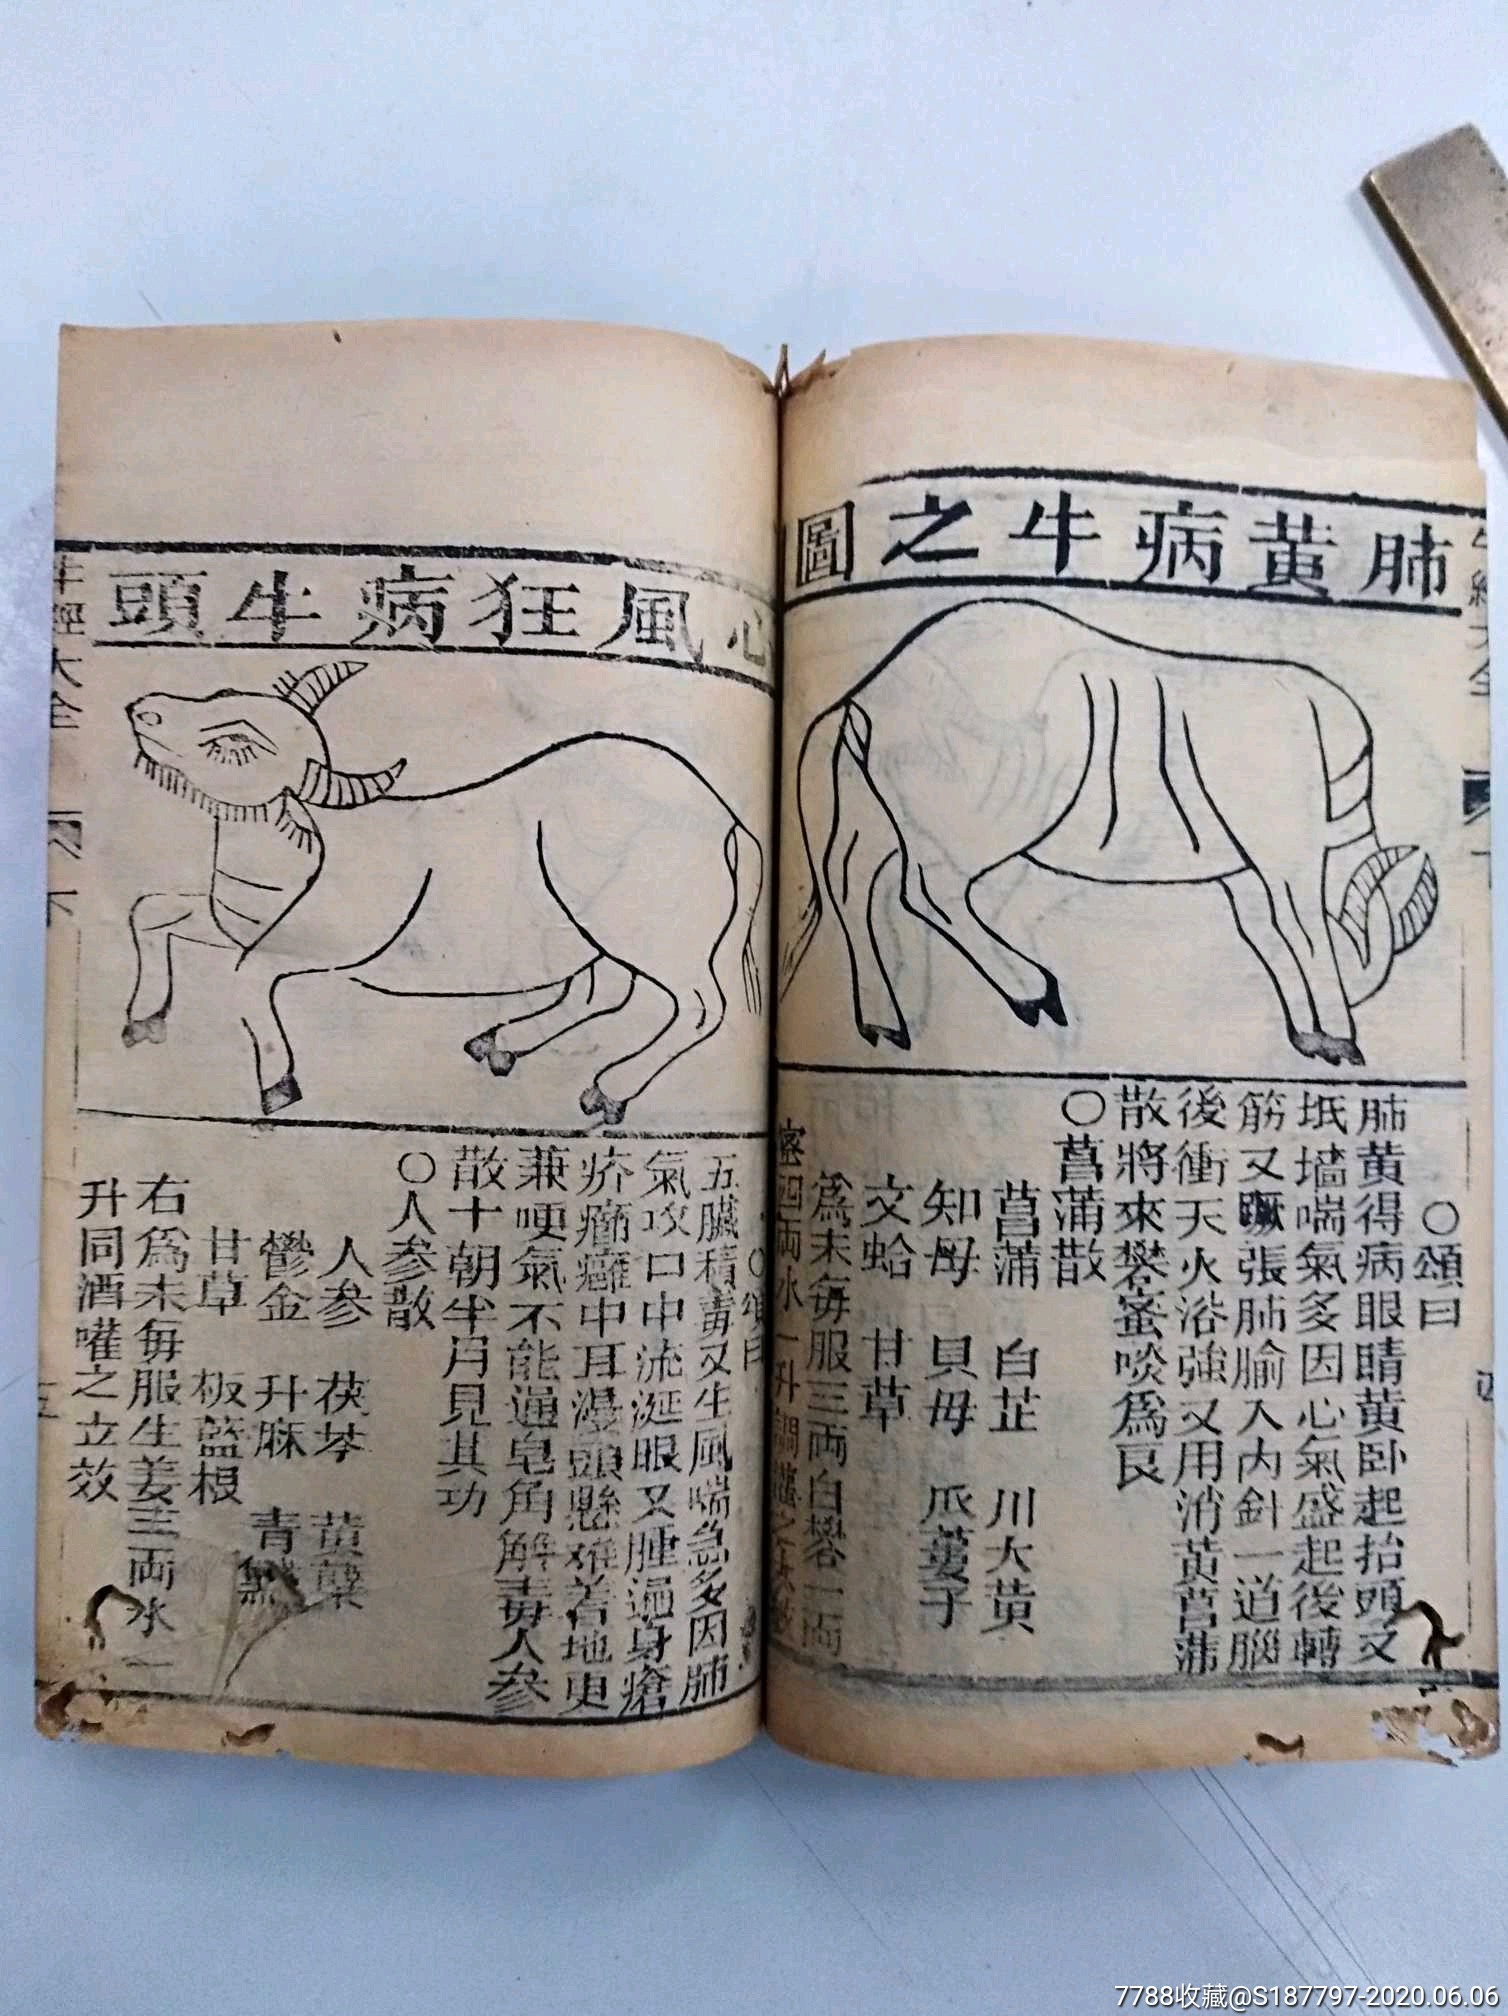 肺黄病牛之圖
〇頌曰
肺黄得病眼睛黄卧起抬頭又
墻喘氣多因心氣盛起後轉
筋又張肺腧入内針一道腦
後衝天火浴強又用消黄菖蒲
散將來礬蜜啖爲良
〇菖蒲散
菖蒲 白芷 川大黄
知母 貝母 瓜蔞子
文蛤 甘草
爲末每服三両白礬一両
蜜四両水一升調灌之
心風狂病牛頭
〇頌曰
五臟積毒又生風喘急多因肺
氣攻口中流涎眼又腫遍身瘡
疥癩中耳漫頭懸难着地更
兼哽氣不能通皂角解毒人參
散十朝半月見其功
〇人參散
人參 茯苓 黄蘗
鬱金 升麻 青黛
甘草 板藍根
右爲末每服生姜三両水一
升同酒嚾之立效
牛經大全
下
五
四
7788收藏@S187797-2020.06.06